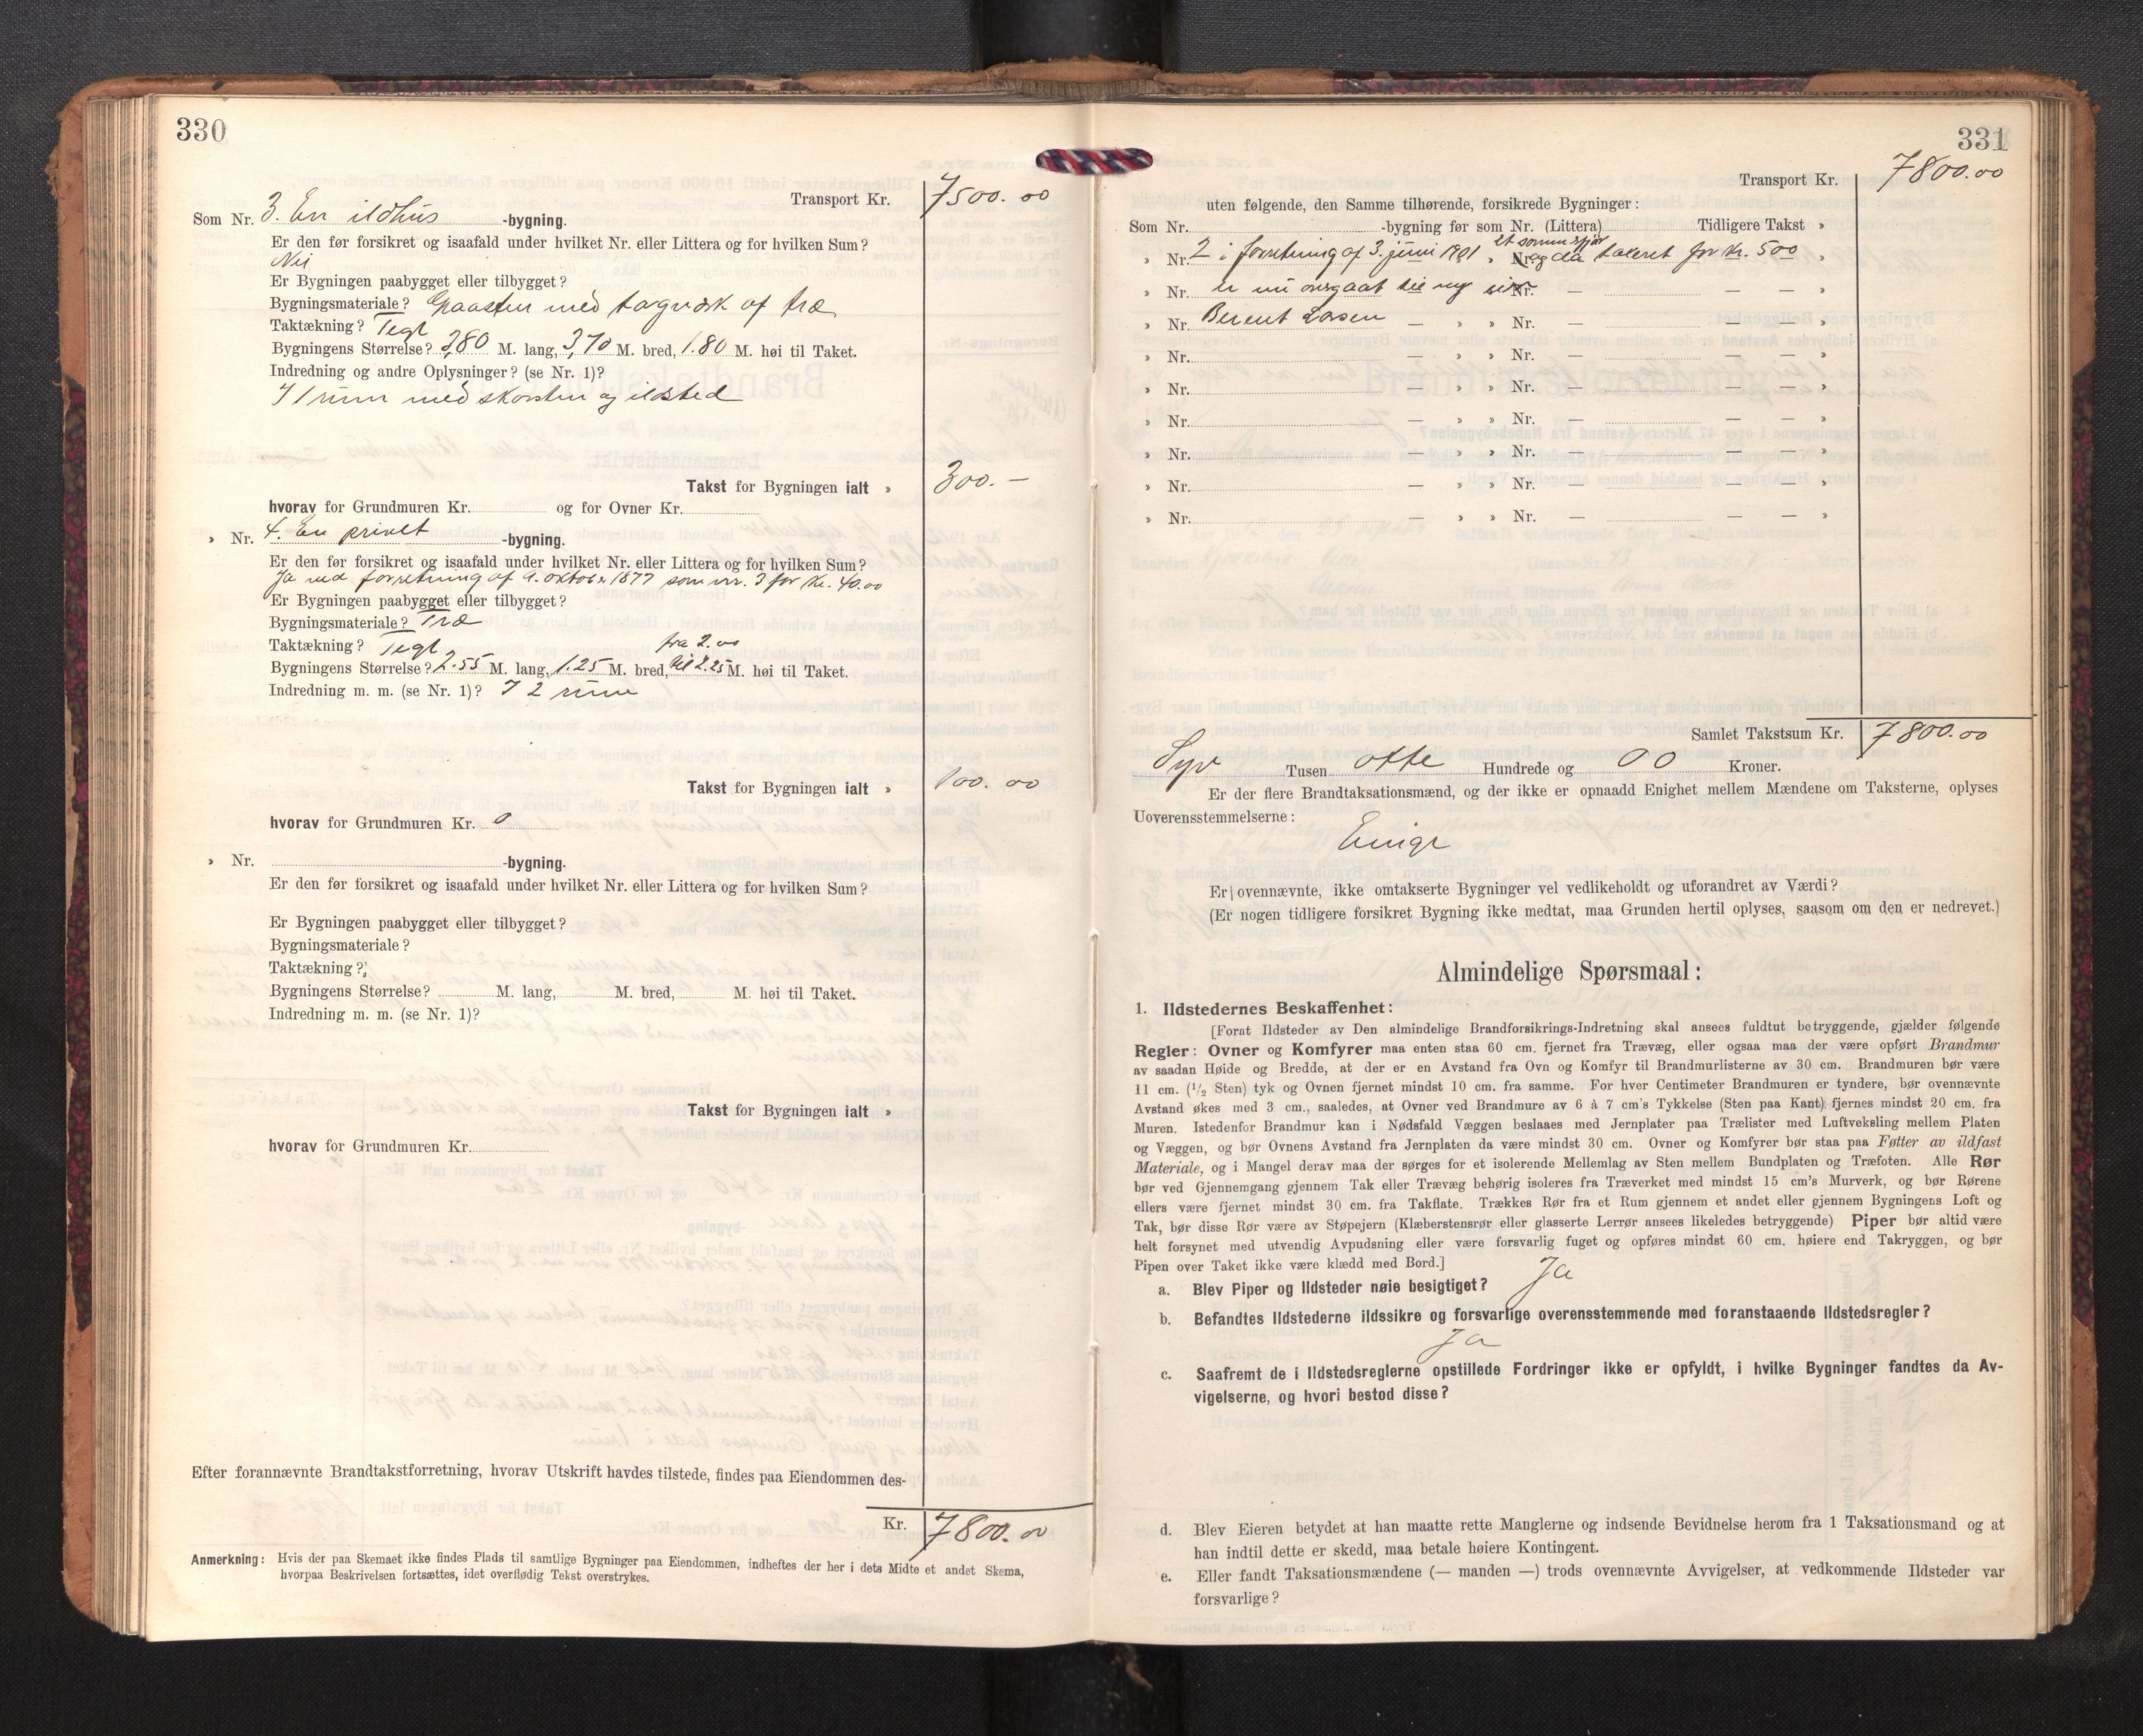 330
Transport Kr. 7500.00
Som Nr. 3. En ildhus -bygning.
Er den før forsikret og isaafald under hvilket Nr. eller Littera og for hvilken Sum?
Nei
Er Bygningen paabygget eller tilbygget?
Bygningsmateriale? Graasten med tagværk af træ
Taktækning? Tegl
Bygningens Størrelse? 3,80 M. lang, 3,70 M. bred, 1.80 M. høi til Taket.
Indredning og andre Oplysninger? (se Nr. 1)?
I 1 rum med skorsten og ildsted
Takst for Bygningen ialt » 300. —
hvorav for Grundmuren Kr. og for Ovner Kr.
» Nr. 4. En privet -bygning.
Er den før forsikret og isaafald under hvilket Nr. eller Littera og for hvilken Sum?
Ja ved forretning af 9. oktober 1877 som nr. 3 for Kr. 40.00
Er Bygningen paabygget eller tilbygget?
Bygningsmateriale? Træ
Taktækning? Tegl fra 2.00
Bygningens Størrelse? 2.55 M. lang, 1.25 M. bred, til 2.25 M. høi til Taket.
Indredning m. m. (se Nr. 1)? I 2 rum
Takst for Bygningen ialt » 100. 00
hvorav for Grundmuren Kr. 0
» Nr. -bygning.
Er den før forsikret og isaafald under hvilket Nr. eller Littera og for hvilken Sum?
Er Bygningen paabygget eller tilbygget?
Bygningsmateriale?
Taktækning?
Bygningens Størrelse? M. lang, M. bred, M. høi til Taket.
Indredning m. m. (se Nr. 1)?
Takst for Bygningen ialt »
hvorav for Grundmuren Kr.
Efter forannævnte Brandtakstforretning, hvorav Utskrift havdes tilstede, findes paa Eiendommen des-
Kr. 7800.00
Anmerkning: Hvis der paa Skemaet ikke findes Plads til samtlige Bygninger paa Eiendommen, indheftes der her i dets Midte et andet Skema,
hvorpaa Beskrivelsen fortsættes, idet overflødig Tekst overstrykes.
331
Transport Kr. 7800.00
uten følgende, den Samme tilhørende, forsikrede Bygninger:
Som Nr. -bygning før som Nr. (Littera) Tidligere Takst »
et sommerfjøs
» Nr. 2 i forretning af 3. juni 1901 » Nr. og da taxeret for Kr. 500 »
» Nr. er nu overgaat til ny eier Nr. — — — »
» Nr. Berent Larsen — » » Nr. — — — »
» Nr. — » » Nr. — — — »
» Nr. — » » Nr. — — — »
» Nr. — » » Nr. — — — »
» Nr. — » » Nr. — — — »
» Nr. — » » Nr. — — — »
» Nr. — » » Nr. — — — »
Samlet Takstsum Kr. 7800.00
Syv Tusen otte Hundrede og 00 Kroner.
Er der flere Brandtaksationsmænd, og der ikke er opnaadd Enighet mellem Mændene om Taksterne, oplyses
Uoverensstemmelserne:
Enige
Er ovennævnte, ikke omtakserte Bygninger vel vedlikeholdt og uforandret av Værdi?
(Er nogen tidligere forsikret Bygning ikke medtat, maa Grunden hertil oplyses, saasom om den er nedrevet.)
Almindelige Spørsmaal:
1. Ildstedernes Beskaffenhet:
[Forat Ildsteder av Den almindelige Brandforsikrings-Indretning skal ansees fuldtut betryggende, gjælder følgende
Regler: Ovner og Komfyrer maa enten staa 60 cm. fjernet fra Trævæg, eller ogsaa maa der være opført Brandmur
av saadan Høide og Bredde, at der er en Avstand fra Ovn og Komfyr til Brandmurlisterne av 30 cm. Brandmuren bør være
11 cm. (1/2 Sten) tyk og Ovnen fjernet mindst 10 cm. fra samme. For hver Centimeter Brandmuren er tyndere, bør ovennævnte
Avstand økes med 3 cm., saaledes, at Ovner ved Brandmure av 6 à 7 cm's Tykkelse (Sten paa Kant) fjernes mindst 20 cm. fra
Muren. Istedenfor Brandmur kan i Nødsfald Væggen beslaaes med Jernplater paa Trælister med Luftveksling mellem Platen
og Væggen, og bør Ovnens Avstand fra Jernplaten da være mindst 30 cm. Ovner og Komfyrer bør staa paa Føtter av ildfast
Materiale, og i Mangel derav maa der sørges for et isolerende Mellemlag av Sten mellem Bundplaten og Træfoten. Alle Rør
bør ved Gjennemgang gjennem Tak eller Trævæg behørig isoleres fra Træverket med mindst 15 cm's Murverk, og bør Rørene
ellers være fjernet mindst 30 cm. fra Takflate. Trækkes Rør fra et Rum gjennem et andet eller gjennem Bygningens Loft og
Tak, bør disse Rør være av Støpejern (Klæberstensrør eller glasserte Lerrør ansees likeledes betryggende) Piper bør altid være
helt forsynet med utvendig Avpudsning eller være forsvarlig fuget og opføres mindst 60 cm. høiere end Takryggen, og bør
Pipen over Taket ikke være klædd med Bord.]
a. Blev Piper og Ildsteder nøie besigtiget? Ja
b. Befandtes Ildstederne ildssikre og forsvarlige overensstemmende med foranstaaende Ildstedsregler?
Ja
c. Saafremt de i Ildstedsreglerne opstillede Fordringer ikke er opfyldt, i hvilke Bygninger fandtes da Av-
vigelserne, og hvori bestod disse?
d. Blev Eieren betydet at han maatte rette Manglerne og indsende Bevidnelse herom fra 1 Taksationsmand og at
han indtil dette er skedd, maa betale høiere Kontingent.
e. Eller fandt Taksationsmændene (— manden —) trods ovennævnte Avvigelser, at vedkommende Ildsteder var
forsvarlige?